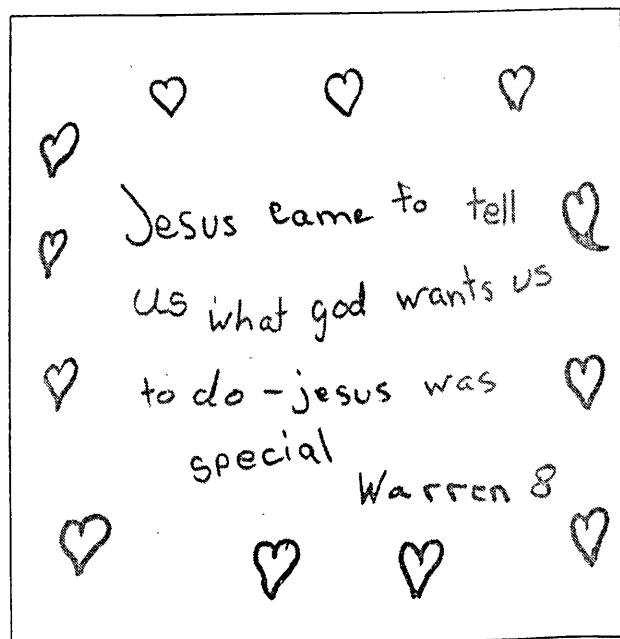 Jesus came to tell
us what god wants us
to do - jesus was
special
Warren 8